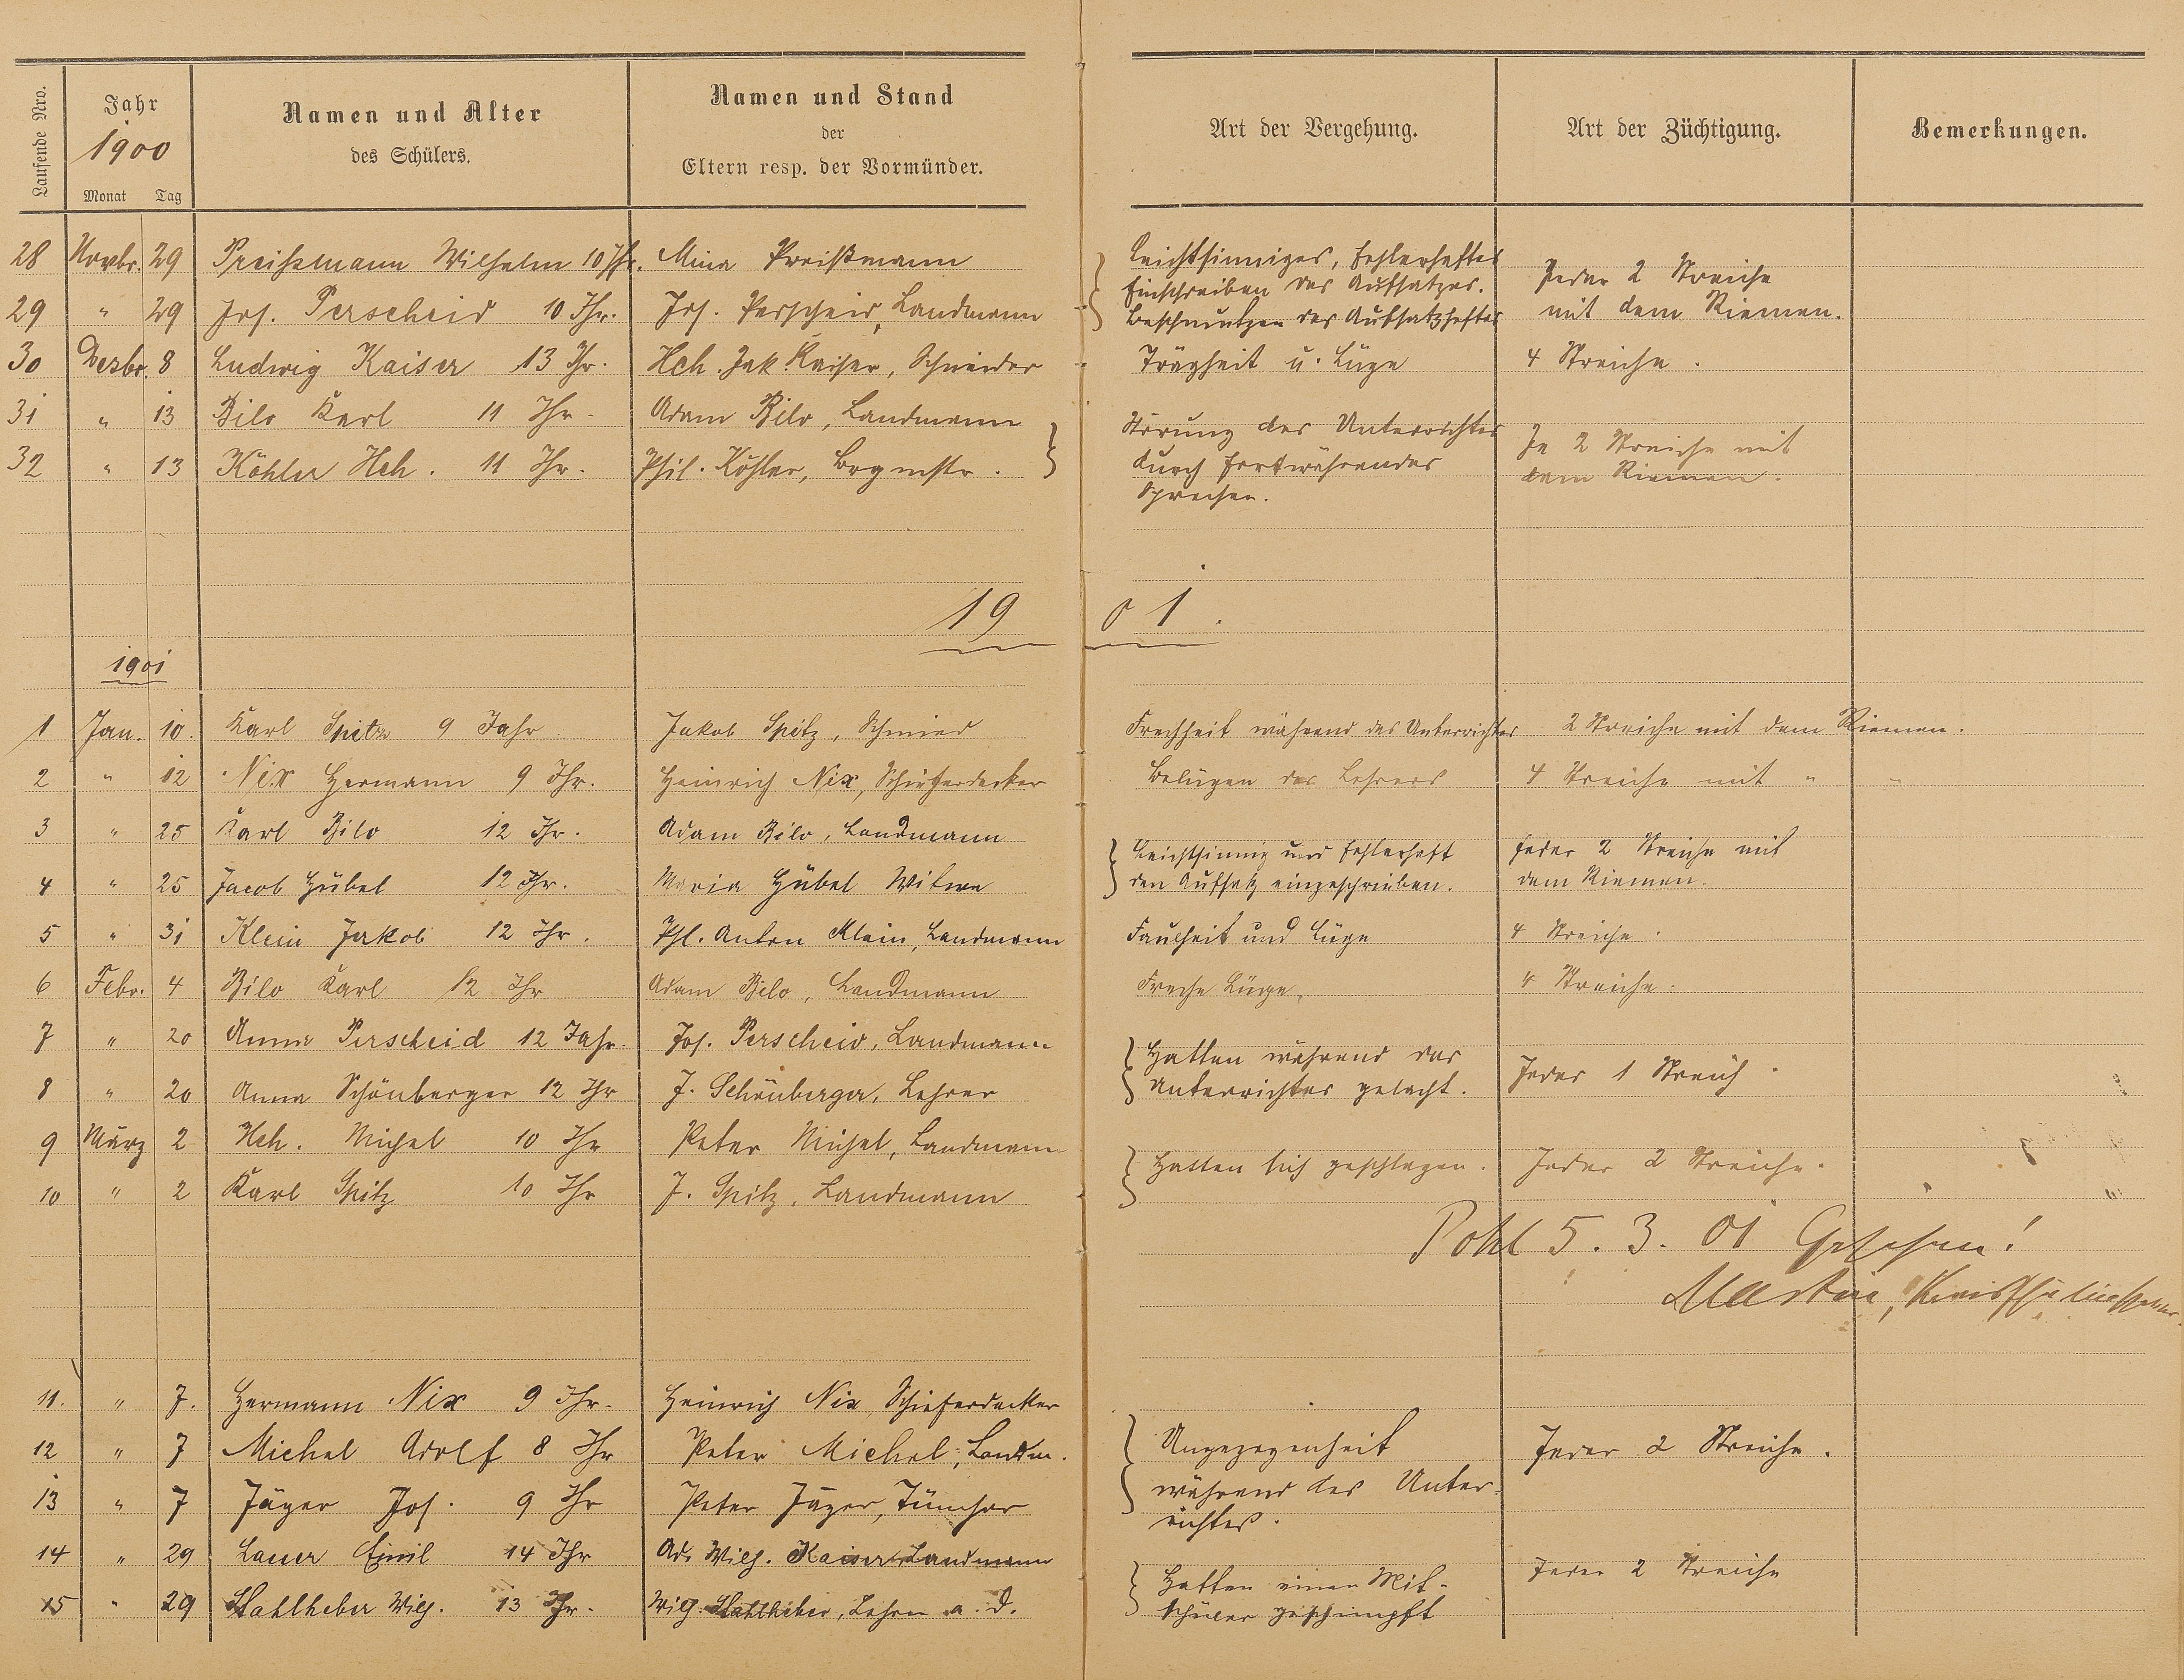 Laufende Nro.
Jahr
1900
Monat Tag
Namen und Alter
des Schülers.
Namen und Stand
der
Eltern resp. der Vormünder.
Art der Vergehung.
Art der Züchtigung.
Bemerkungen.
28 Novbr. 29 Preißmann Wilhelm 10 Jhr. Mina Preißmann
29 " 29 Jos. Perscheid 10 Jhr. Jos. Perscheid, Landmann
Leichtsinniges, fehlerhaftes
Einschreiben des Aufsatzes.
Beschmutzen des Aufsatzheftes
Jeder 2 Streiche
mit dem Riemen.
30 Dezbr. 8 Ludwig Kaiser 13 Jhr. Hch. Jak. Kaiser, Schneider Trägheit u. Lüge 4 Streiche.
31 " 13 Bilo Karl 11 Jhr. Adam Bilo, Landmann
32 " 13 Köhler Hch. 11 Jhr. Phil. Köhler, Brgmstr.
Störung des Unterrichtes
durch fortwährendes
Sprechen.
Je 2 Streiche mit
dem Riemen.
1901.
1901
1 Jan. 10. Karl Spitz 9 Jahr Jakob Spitz, Schmied Frechheit während des Unterrichtes 2 Streiche mit dem Riemen.
2 " 12 Nix Hermann 9 Jhr. Heinrich Nix, Schieferdecker Belügen des Lehrers 4 Streiche mit " "
3 " 25 Karl Bilo 12 Jhr. Adam Bilo, Landmann
4 " 25 Jacob Hübel 12 Jhr. Maria Hübel Witwe
Leichtsinnig und fehlerhaft
den Aufsatz eingeschrieben.
Jeder 2 Streiche mit
dem Riemen.
5 " 31 Klein Jakob 12 Jhr. Phl. Anton Klein, Landmann Faulheit und Lüge 4 Streiche.
6 Febr. 4 Bilo Karl 12 Jhr Adam Bilo, Landmann Freche Lüge, 4 Streiche.
7 " 20 Anna Perscheid 12 Jahr. Jos. Perscheid, Landmann
8 " 20 Anna Schönberger 12 Jhr J. Schönberger, Lehrer
Hatten während des
Unterrichtes gelacht.
Jedes 1 Streich.
9 März 2 Hch. Michel 10 Jhr Peter Michel, Landmann
10 " 2 Karl Spitz 10 Jhr J. Spitz, Landmann
Hatten sich geschlagen. Jeder 2 Streiche.
Pohl 5. 3. 01 Gesehen!
Martin, Kreisschulinspektor
11. " 7. Hermann Nix 9 Jhr. Heinrich Nix, Schieferdecker
12 " 7 Michel Adolf 8 Jhr Peter Michel, Landm.
13 " 7 Jäger Jos. 9 Jhr Peter Jäger, Tüncher
Ungezogenheit
während des Unter-
richtes.
Jeder 2 Streiche.
14 " 29 Lauer Emil 14 Jhr Ad. Wilh. Kaiser, Landmann
15 " 29 Stahlheber Wilh. 13 Jhr. Wilh. Stahlheber, Lehrer a. D.
Hatten einen Mit-
schüler geschimpft
Jeder 2 Streiche